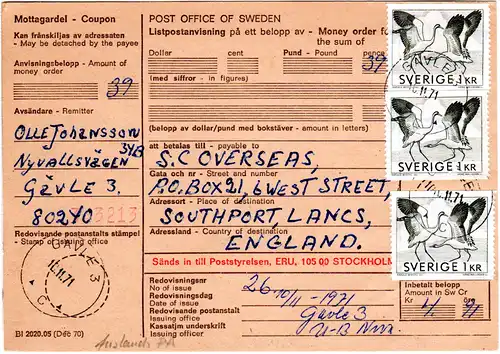 Mottagardel - Coupon
Kan frånskiljas av adressaten -
May be detached by the payee
Anvisningsbelopp - Amount of
money order
39
Avsändare - Remitter
Olle Johansson
Nyvallsvägen 34B
Gävle 3.
80240
3213
Redovisande postanstalts stämpel
- Stamp of issuing office
GÄVLE 3
16.11.71
C
BI 2020.05 (Dec 70)
POST OFFICE OF SWEDEN
Listpostanvisning på ett belopp av - Money order for
the sum of
Dollar cent Pund - Pound pence
39
(med siffror - in figures)
(belopp av dollar/pund med bokstäver - amount in letters)
att betalas till - payable to
S.C OVERSEAS,
Gata och nr - Street and number
P.O. BOX 21, 6 WEST STREET,
Adressort - Place of destination
SOUTHPORT, LANCS,
Adressland - Country of destination
ENGLAND.
Sänds in till Poststyrelsen, ERU, 105 00 STOCKHOLM
Redovisningsnr
No of issue
26
Redovisningsdag
Date of issue
10/11-1971
Redovisande postanstalt
Issuing office
Gävle 3
Kassatjm underskrift
Issuing officer
Inbetalt belopp
Amount in Sw Cr
Kr öre
4
SVERIGE 1 KR
GÄVLE
16.11.71
SVERIGE 1 KR
SVERIGE 1 KR